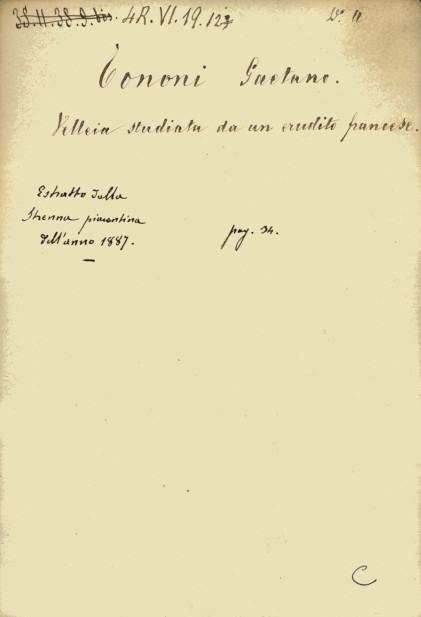 38.II.38.9.bis. 4R.VI.19.12
Tononi Gaetano.
Velleia studiata da un erudito francese.
Estratto dalla
Strenna piacentina
dell'anno 1887.
pag. 34.
C